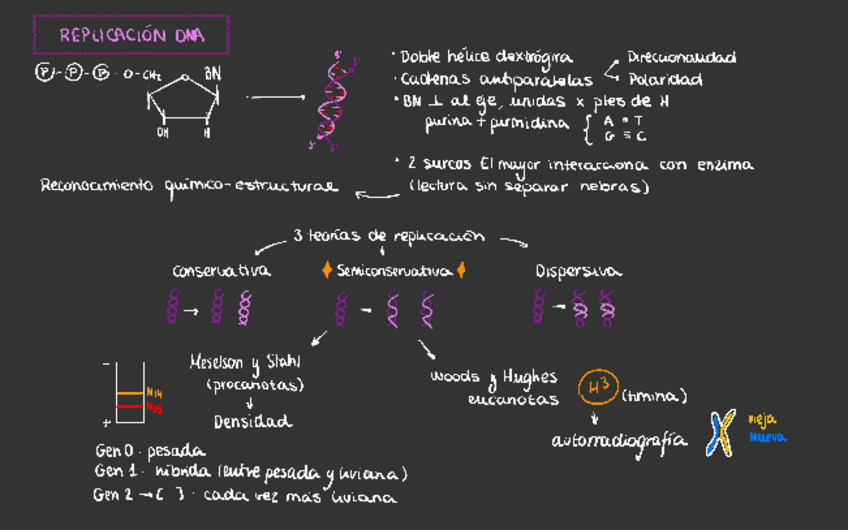 REPLICACIÓN DNA
P - P - P - O - CH2
BN
OH H
5' 3'
3' 5'
• Doble hélice dextrógira
• Cadenas antiparalelas
Direccionalidad
Polaridad
• BN ⊥ al eje, unidas x ptes de H
purina + pirimidina { A = T
G ≡ C
• 2 surcos El mayor interacciona con enzima
(lectura sin separar hebras)
Reconocimiento químico-estructural
3 teorías de replicación
Conservativa
Semiconservativa
Dispersiva
Meselson y Stahl
(procariotas)
Densidad
- N14
N15
+
Gen 0 · pesada
Gen 1 · híbrida (entre pesada y liviana)
Gen 2 → [ ] · cada vez más liviana
Woods y Hughes
eucariotas
H3 (timina)
autorradiografía
Vieja
Nueva